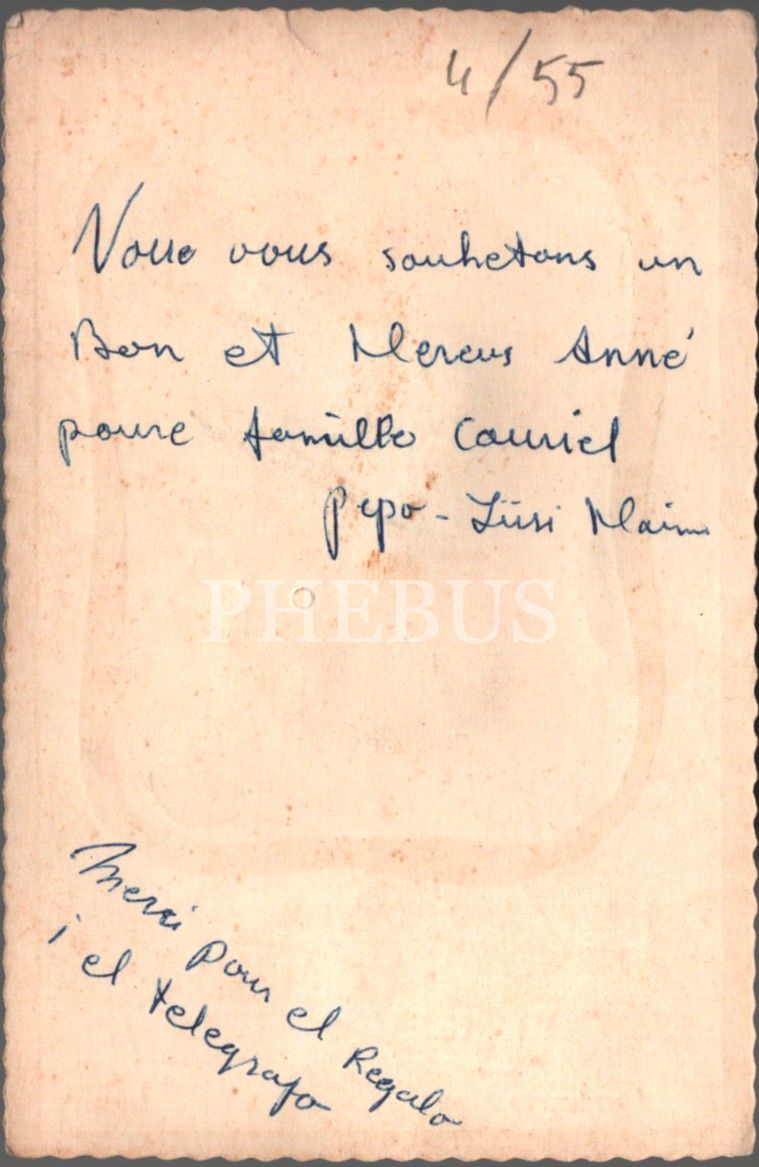 4/55
Nous vous souhetons un
Bon et Hereus Anné
poure famille Couriel
Pepo - Lüsi Maim
PHEBUS
Mersi pour el Regalo
i el telegrafo